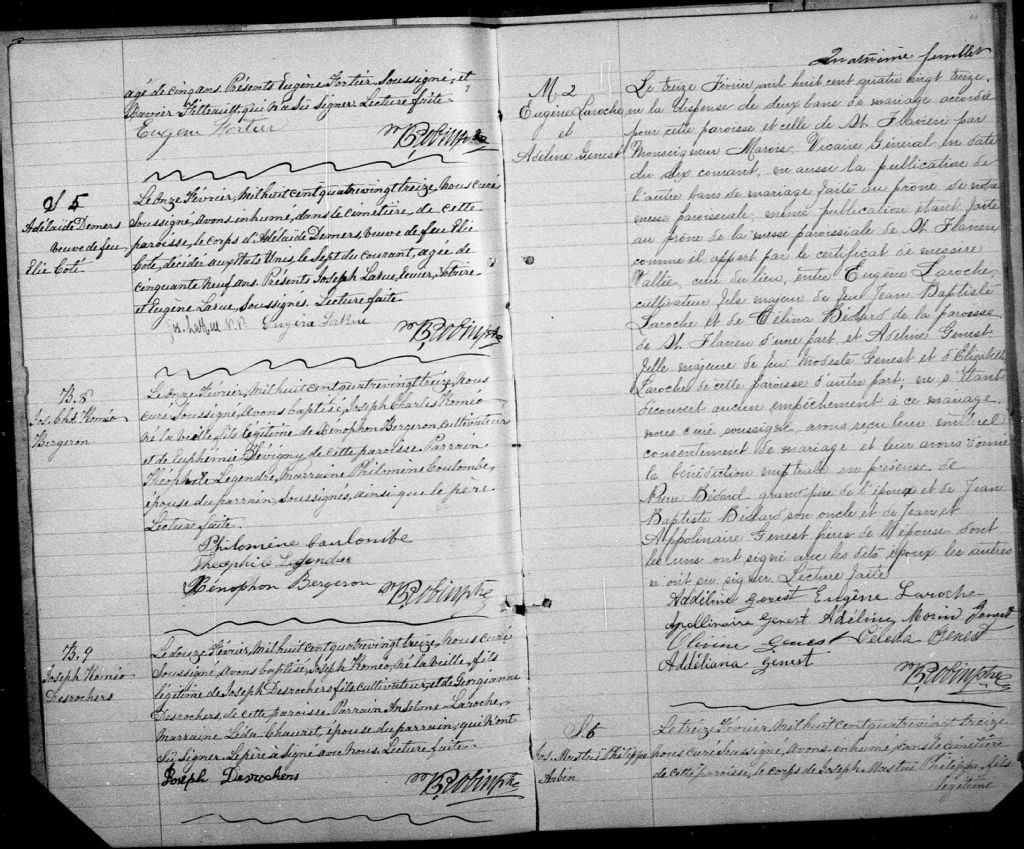 agé de cinq ans. Présents Eugène Fortier, Soussigné, et
qui n'a su signer. Lecture faite
Eugène Fortier
Robin ptre
S 5
Adélaide Demers
Veuve de feu
Elie Coté
Le onze Février, mil huit cent quatre vingt treize, nous curé
soussigné, avons inhumé, dans le cimetière, de cette
paroisse, le corps d'Adélaide Demers, Veuve de feu Elie
Coté, décédée aux Etats Unis, le sept du courant, agée de
cinquante neuf ans. Présents Joseph Larue, Notaire
et Eugène Larue, Soussignés. Lecture faite
Eugène Larue
Robin ptre
B. 8
Jos. Chs. Roméo
Bergeron
Le onze Février, mil huit cent quatre vingt treize, nous
curé soussigné, avons baptisé, Joseph Charles Roméo
né la veille, fils légitime de Xénophon Bergeron, cultivateur
et de Euphémie de cette paroisse. Parrain
Théophile Legendre, marraine Philomène Coulombe,
épouse du parrain, soussignés, ainsi que le père
Lecture faite.
Philomène Coulombe
Théophile Legendre
Xénophon Bergeron
Robin ptre
B. 9
Joseph Roméo
Desrochers
Le douze Février, mil huit cent quatre vingt treize, nous curé
soussigné, avons baptisé, Joseph Roméo, né la veille, fils
légitime de Joseph Desrochers fils, cultivateur, et de Georgeanne
Desrochers, de cette paroisse. Parrain Anselme Laroche,
marraine Léda Chauret, épouse du parrain, qui n'ont
sû signer. Le père a signé avec nous. Lecture faite.
Joseph Desrochers
Robin ptre
Quatrième feuillet
M. 2
Eugène Laroche
et
Adéline Genest
Le treize Février mil huit cent quatre vingt treize,
vu la dispense de deux bans de mariage accordée
pour cette paroisse et celle de St. Flavien par
Monseigneur Marois, Vicaire Général en date
du dix courant, vu aussi la publication de
l'autre bans de mariage faite au prône de notre
messe paroissiale, même publication étant faite
au prône de la messe paroissiale de St. Flavien
comme il appert par le certificat de messire
Vallée, curé du lieu, entre Eugène Laroche
cultivateur fils majeur de feu Jean Baptiste
Laroche et de Célina Bédard de la paroisse
de St. Flavien d'une part, et Adéline Genest
fille majeure de feu Modeste Genest et d'Elizabeth
Laroche de cette paroisse d'autre part; ne s'étant
découvert aucun empêchement à ce mariage,
nous curé, soussigné, avons reçu leur mutuel
consentement de mariage et leur avons donné
la bénédiction nuptiale en présense de
Pierre Bédard grand père de l'époux et de Jean
Baptiste Bédard son oncle et de Jean et
Appolinaire Genest frères de l'épouse dont
les uns ont signé avec les dits époux les autres
n'ont su signer. Lecture faite
Addéline Genest Eugène Laroche
Apollinaire Genest Adéline Morin Genest
Genest Genest
Addéliana Genest
Robin ptre
S 6
Jos. Philippe
Aubin
Le treize Février, mil huit cent quatre vingt treize
nous curé soussigné, avons inhumé, dans le cimetière
de cette paroisse, le corps de Joseph Philippe, fils
légitime